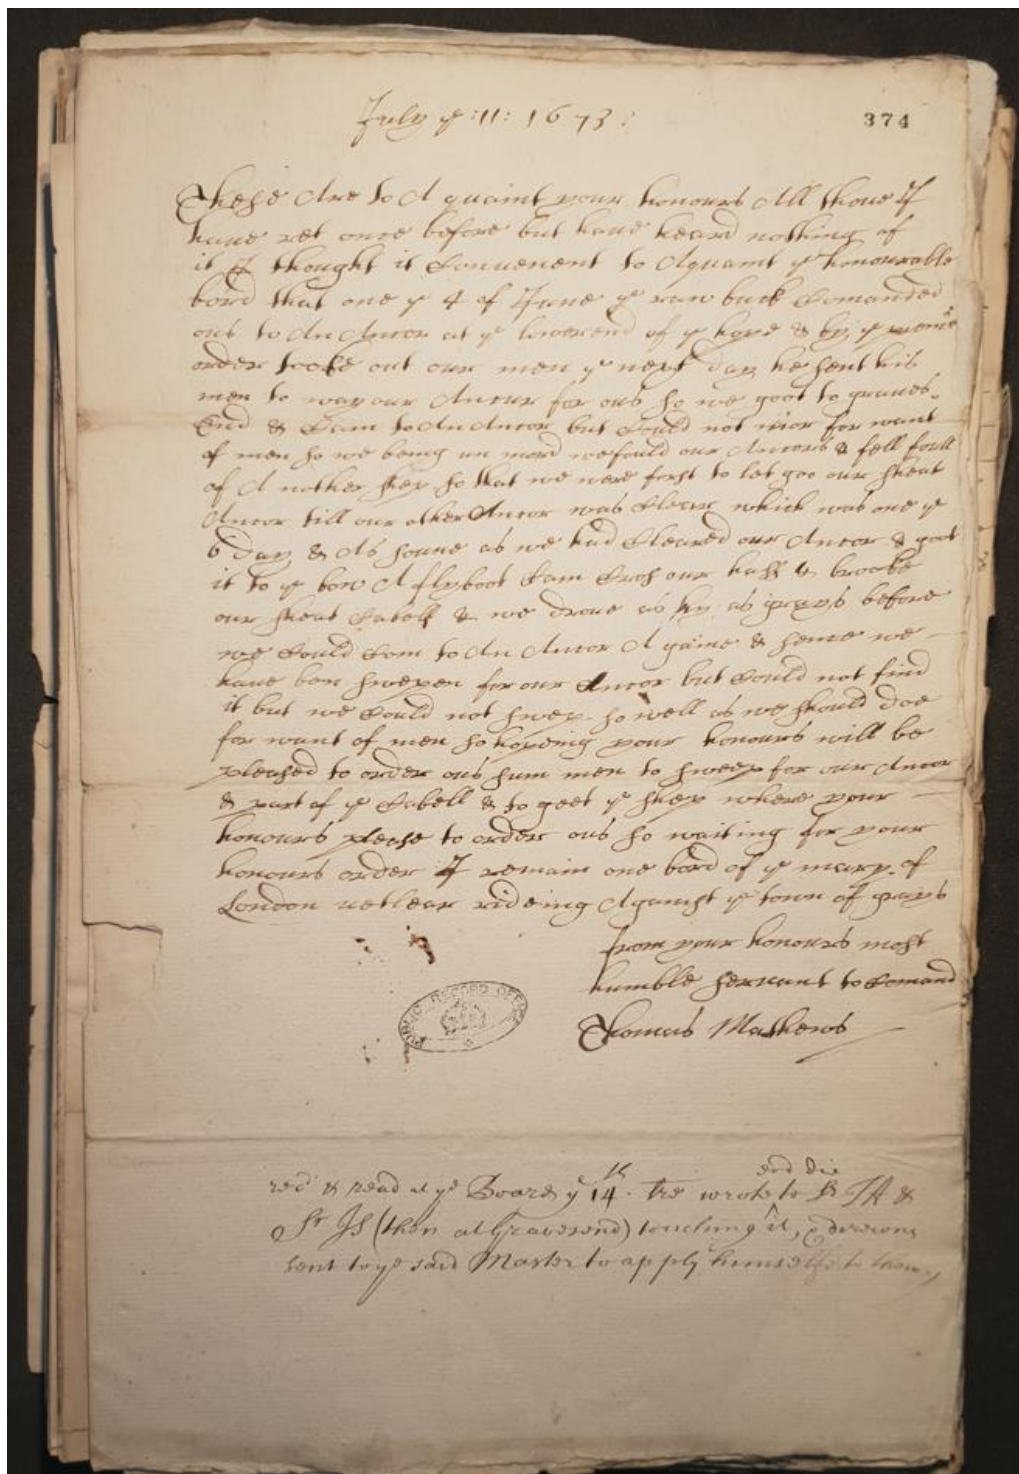 July ye :11: 1673:
374
These Are to A quaint your honours All thoue I
haue ret once before but haue heard nothing of
it I thought it Conuenent to Aquaint ye honourable
bord that one ye 4 of June ye run buck Comanded
ous to An Ancor at ye lower end of ye hope & by ye
order tooke out our men ye next day he sent his
men to way our Ancur for ous so we goot to graues-
End & Cam to An Ancor but Could not mor for want
of men so we being un mord we fould our Ancors & fell foull
of A nother shep so that we were forst to let goo our sheat
Ancor till our other Ancor was Clear which was one ye
6 Day & As soune as we had Cleared our Ancor & goot
it to ye bow A flyboot Cam Cros our hass & brooke
our sheat Cabell & we droue as hy as grays before
we Could Com to An Ancor A gaine & sence we
haue ben swepen for our Ancor but Could not find
it but we Could not swep so well as we should doe
for want of men so hopeing your honours will be
pleased to order ous sum men to sweep for our Ancor
& part of ye Cabell & to geet ye shep where your
honours please to order ous so waiting for your
honours order I remain one bord of ye mary of
London rideing Against ye town of grays
from your honours most
humble seruant to Comand
Thomas Mathews
PUBLIC RECORD OFFICE
recd & read at ye Board ye 14th. lre wrote eod die to Sr &
Sr (then at Gravesend) touching it, &
sent to ye said Master to apply himselfe to them